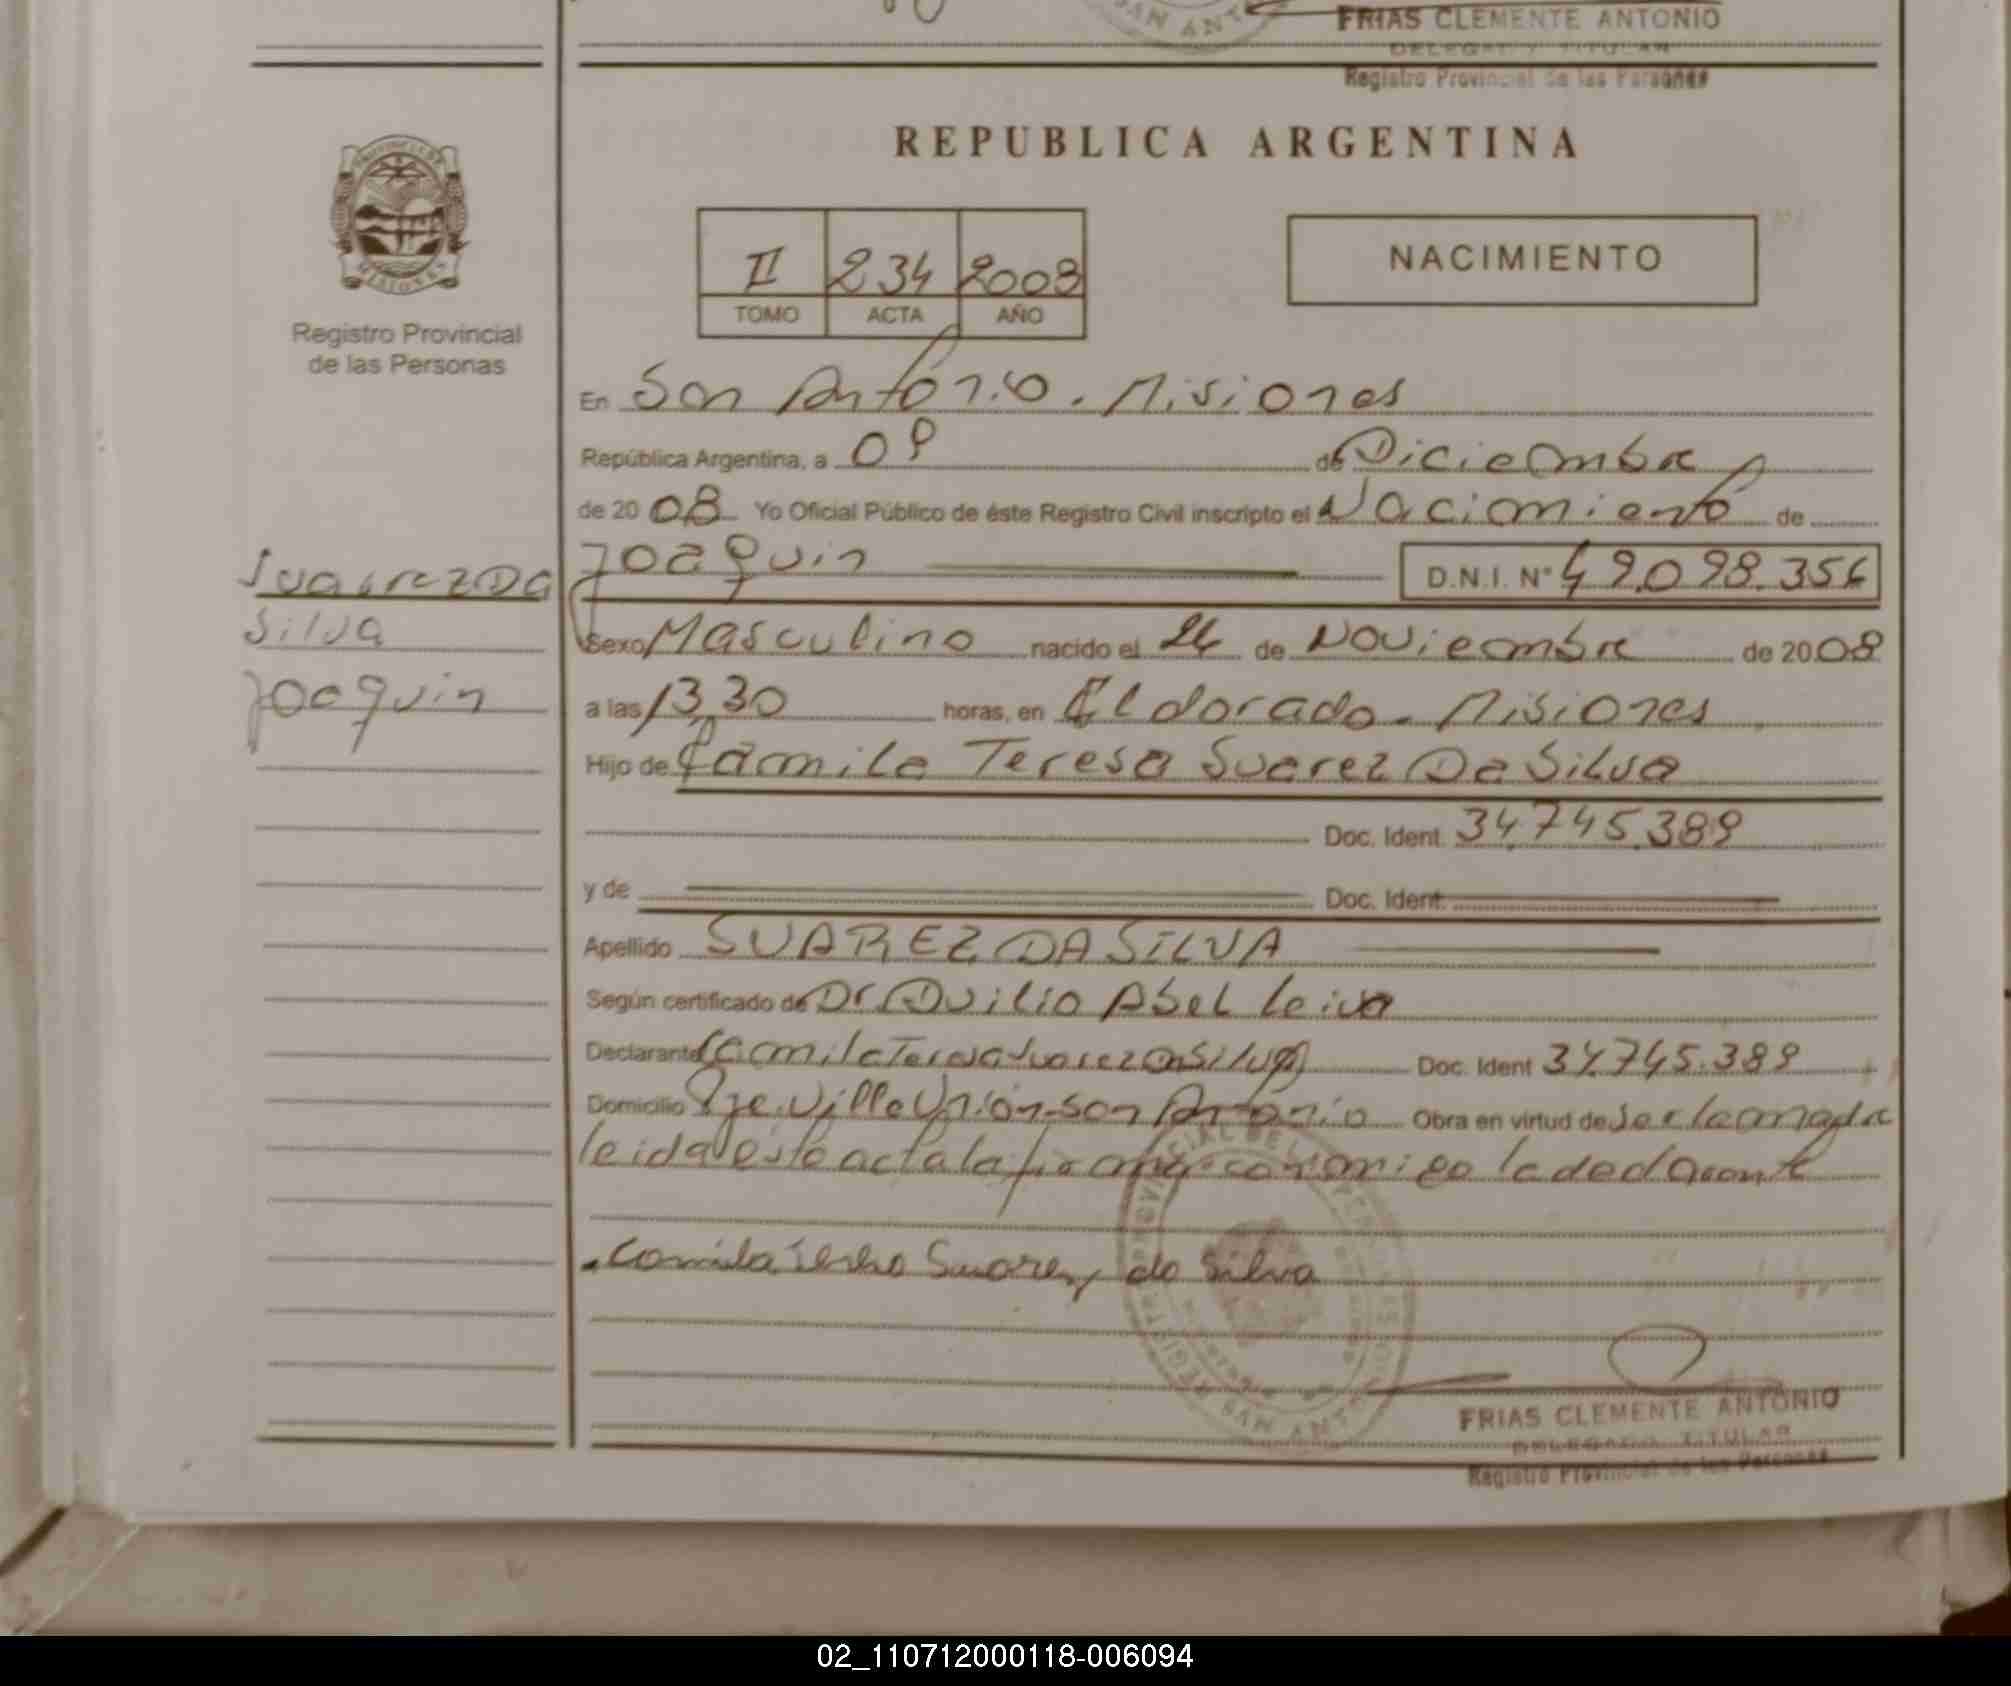 FRIAS CLEMENTE ANTONIO
DELEGADO TITULAR
Registro Provincial de las Personas
REPUBLICA ARGENTINA
II 234 2008
TOMO ACTA AÑO
NACIMIENTO
MISIONES
Registro Provincial
de las Personas
En San Antonio. Misiones
República Argentina, a 09 de Diciembre
de 2008 Yo Oficial Público de éste Registro Civil inscripto el Nacimiento de
Joaquin D.N.I. Nº 49.098.356
Suarez Da
Silva
Joaquin
Sexo Masculino nacido el 24 de Noviembre de 2008
a las 13,30 horas, en Eldorado. Misiones
Hijo de Camila Teresa Suarez Da Silva
Doc. Ident. 34.745.389
y de Doc. Ident.
Apellido SUAREZ DA SILVA
Según certificado de Dr Duilio Abel Leiva
Declarante Camila Teresa Suarez Da Silva Doc. Ident 34.745.389
Domicilio Pje. Villa Union-San Antonio Obra en virtud de Ser la madre
leida esta acta la firma conmigo la declarante
Camila Teresa Suarez da Silva
FRIAS CLEMENTE ANTONIO
DELEGADO TITULAR
Registro Provincial de las Personas
02_110712000118-006094